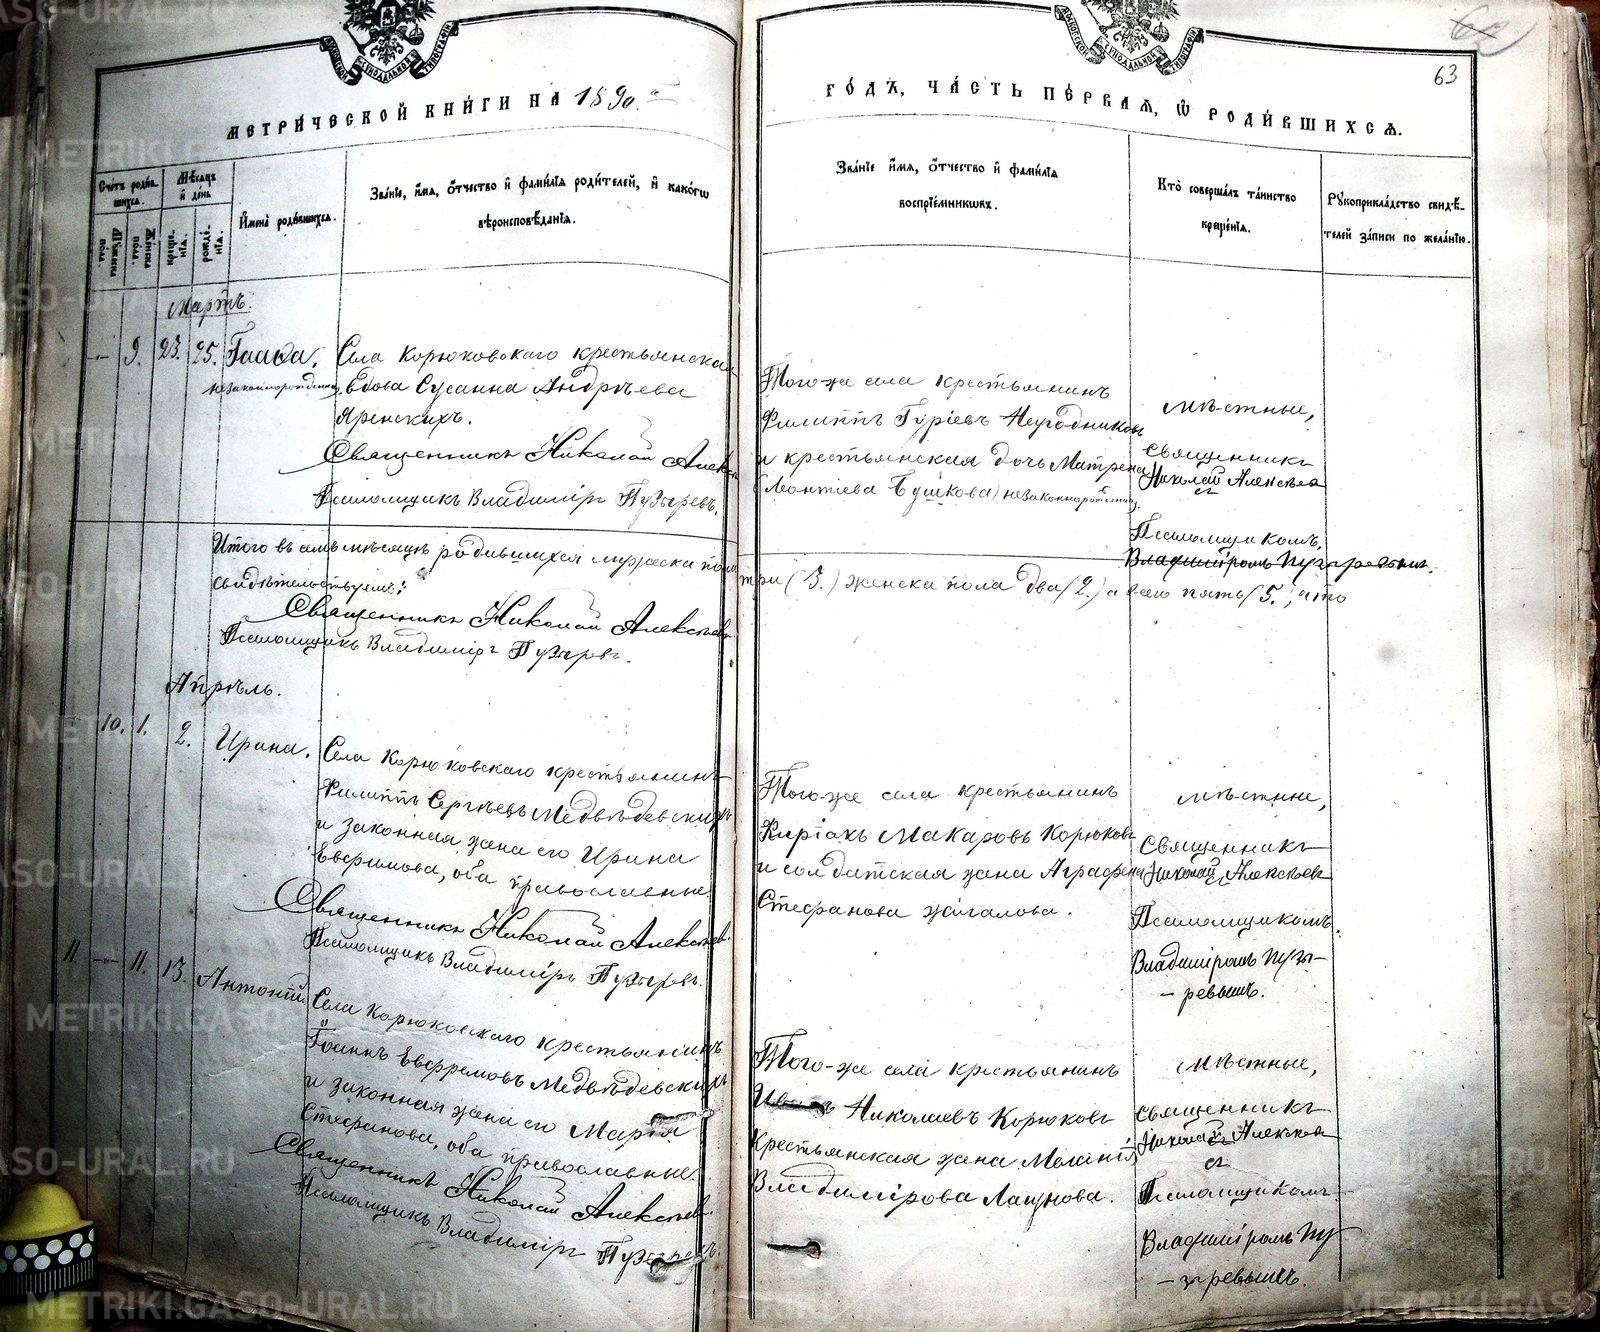 63
МЕТРИ́ЧЕСКОЙ КНИ́ГИ НА 1890.
ГО́ДЪ, ЧА́СТЬ ПЕ́РВАЯ, Ѡ҆ РОДИ́ВШИХСЯ.
Сче́тъ роди́вшихся.
Мꙋ́жеска по́ла.
Же́нска по́ла.
Мѣ́сяцъ и҆ де́нь
рожде́нїя.
креще́нїя.
И҆мена̀ роди́вшихся.
Зва́нїе, и҆́мя, о҆́тчество и҆ фами́лїя роди́телей, и҆ како́гѡ
вѣроисповѣ́данїя.
Зва́нїе и҆́мя, о҆́тчество и҆ фами́лїя
воспрїе́мникѡвъ.
Кто̀ соверша́лъ та́инство
креще́нїя.
Рꙋкоприкла́дство свидѣ́-
телей за́писи по жела́нїю.
Мартъ.
9. 23. 25.
незаконнорожденная
Села Корюковскаго крестьянская
вдова Сусанна Андрѣева
Яренскихъ.
Священникъ Николай Алексѣевъ
Псаломщикъ Владиміръ Пузыревъ.
Того-же села крестьянинъ
Филиппъ Гуріевъ
и крестьянская дочь Матрена
Леонтіева Бушкова (незаконнорожденная)
Мѣстные,
Священникъ
Николай Алексѣевъ
съ
Псаломщикомъ
Владиміромъ Пузыревымъ.
Итого въ семъ мѣсяцѣ родившихся мужеска пола три (3.) женска пола два (2.) а всего пять (5.), что
свидѣтельствуемъ:
Священникъ Николай Алексѣевъ
Псаломщикъ Владиміръ Пузыревъ.
Апрѣль.
10. 1. 2. Ирина.
Села Корюковскаго крестьянинъ
Филиппъ Сергѣевъ Медвѣдевскихъ
и законная жена его Ирина
Евфимова, оба православные.
Священникъ Николай Алексѣевъ.
Псаломщикъ Владиміръ Пузыревъ.
Того-же села крестьянинъ
Киріакъ Макаровъ Корюковъ
и солдатская жена Аграфена
Стефанова Жигалова.
Мѣстные,
Священникъ
Николай Алексѣевъ
съ
Псаломщикомъ
Владиміромъ Пузы-
-ревымъ.
11. -"- 11. 13. Антоній
Села Корюковскаго крестьянинъ
Іоаннъ Евфремовъ Медвѣдевскихъ
и законная жена его Марія
Стефанова, оба православные.
Священникъ Николай Алексѣевъ.
Псаломщикъ Владиміръ Пузыревъ.
Того-же села крестьянинъ
Николаевъ Корюковъ
Крестьянская жена Меланія
Владимірова Лагунова.
Мѣстные,
Священникъ
Николай Алексѣевъ
съ
Псаломщикомъ
Владиміромъ Пу-
-зыревымъ.
METRIKI.GASO-URAL.RU